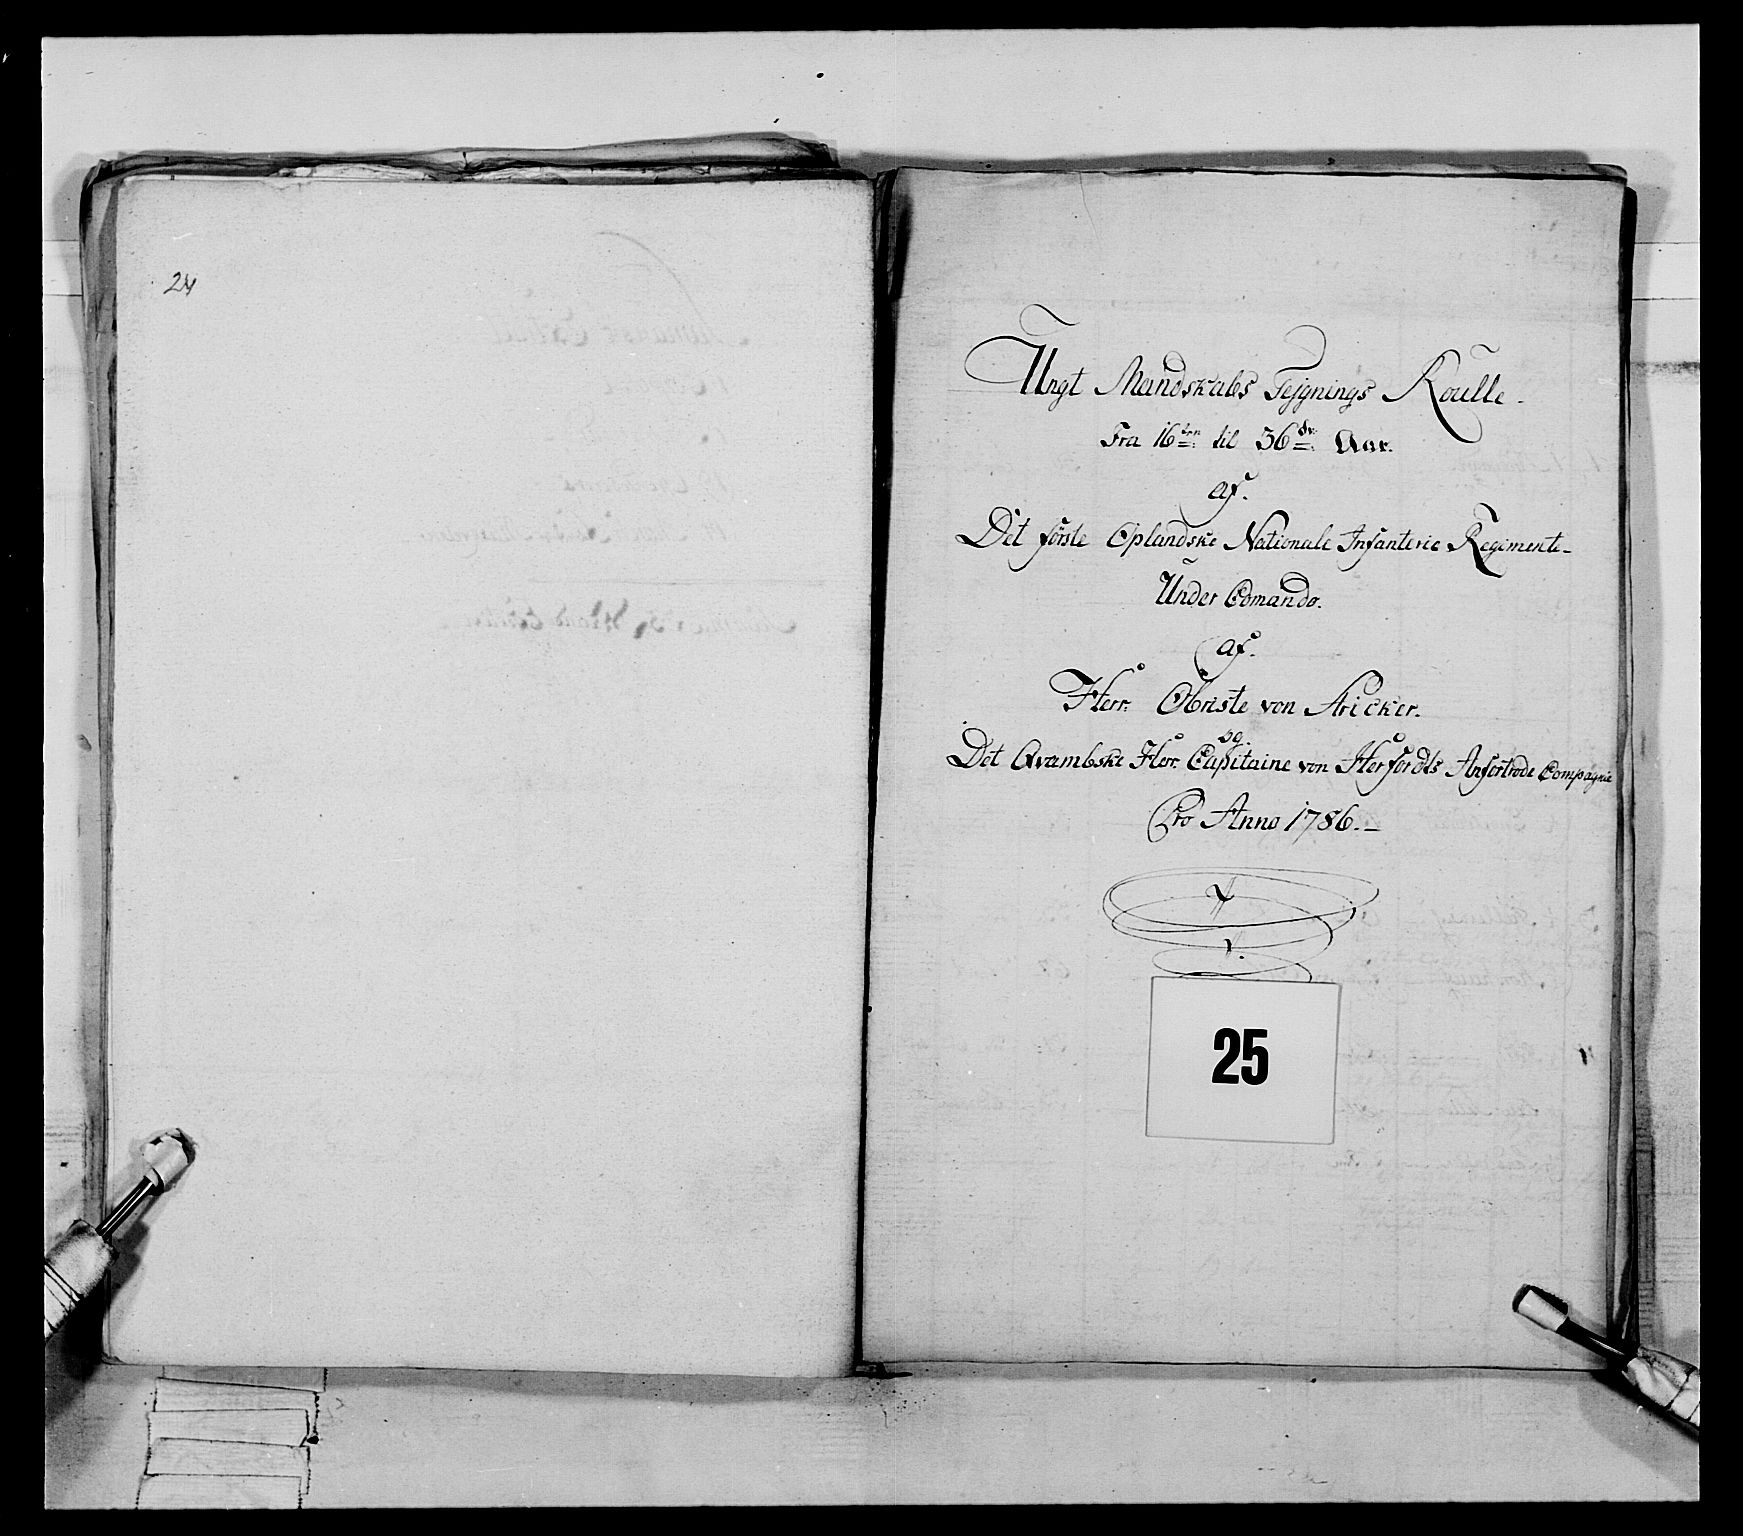 24
Ungt Mandskabs Tejgnings Roulle.
Fra 16ten til 36dv. Aar.
af.
Det förste Oplandske Nationale Infanterie Regimente
Under Comando.
af.
Herr. Obriste von Aricker.
og.
Det Qvambske Herr. Capitaine von Herfordts Anfortrode Compagnie
Pro Anno 1786.
25